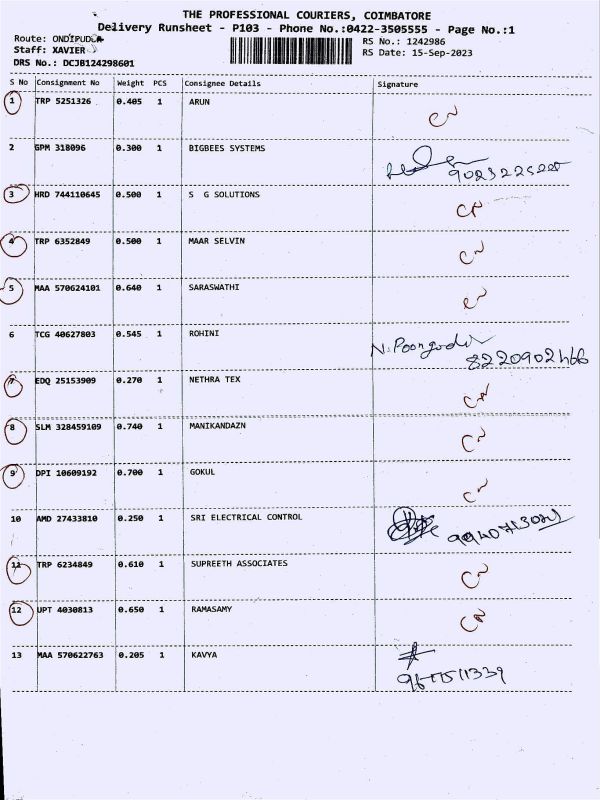 THE PROFESSIONAL COURIERS, COIMBATORE
Delivery Runsheet - P103 - Phone No.:0422-3505555 - Page No.:1
Route: ONDIPUDUR
RS No.: 1242986
Staff: XAVIER
RS Date: 15-Sep-2023
DRS No.: DCJB124298601
S No Consignment No Weight PCS Consignee Details Signature
1 TRP 5251326 0.405 1 ARUN
2 GPM 318096 0.300 1 BIGBEES SYSTEMS
3 HRD 744110645 0.500 1 S G SOLUTIONS
4 TRP 6352849 0.500 1 MAAR SELVIN
5 MAA 570624101 0.640 1 SARASWATHI
6 TCG 40627803 0.545 1 ROHINI
N. Poongodi
8220902466
7 EDQ 25153909 0.270 1 NETHRA TEX
8 SLM 328459109 0.740 1 MANIKANDAZN
9 DPI 10609192 0.700 1 GOKUL
10 AMD 27433810 0.250 1 SRI ELECTRICAL CONTROL
11 TRP 6234849 0.610 1 SUPREETH ASSOCIATES
12 UPT 4030813 0.650 1 RAMASAMY
13 MAA 570622763 0.205 1 KAVYA